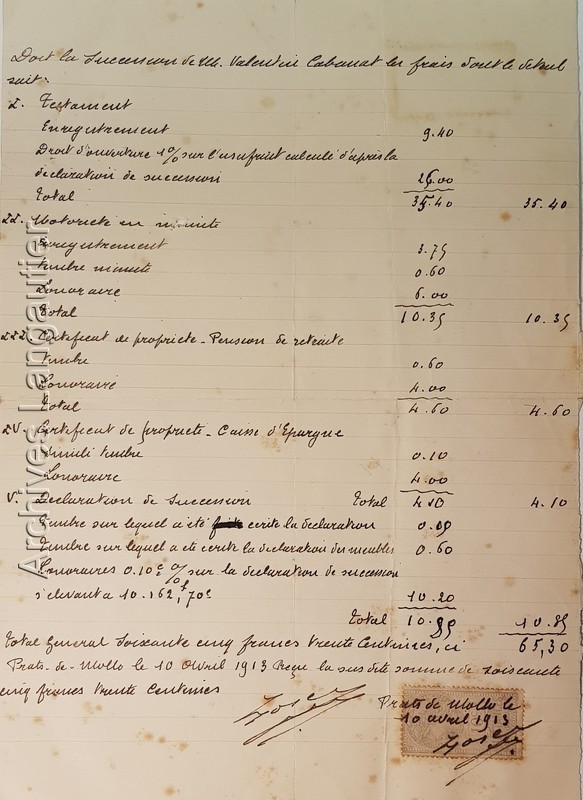 Doit la Succession de M. Valentin Cabanat les frais dont le détail
suit:
I. Testament
Enregistrement 9.40
Droit d'ouverture 1% sur l'usufruit calculé d'après la
déclaration de succession 26.00
Total 35.40 35.40
II. Notoriété en minute
Enregistrement 3.75
timbre minute 0.60
honoraire 6.00
Total 10.35 10.35
III. Certificat de propriété - Pension de retraite
timbre 0.60
honoraire 4.00
Total 4.60 4.60
IV. Certificat de propriété - Caisse d'Epargne
timbre 0.10
honoraire 4.00
V. Déclaration de Succession Total 4.10 4.10
timbre sur lequel a été écrite la déclaration 0.05
timbre sur lequel a été écrite la déclaration des meubles 0.60
honoraires 0.10c % sur la déclaration de succession
s'élevant à 10.162,f 70c 10.20
Total 10.85 10.85
Total Général Soixante cinq francs trente Centimes, ci 65,30
Prats-de-Mollo le 10 Avril 1913 Reçu la susdite somme de soixante
cinq francs trente Centimes
Prats de Mollo le
10 avril 1913
Archives Langautier